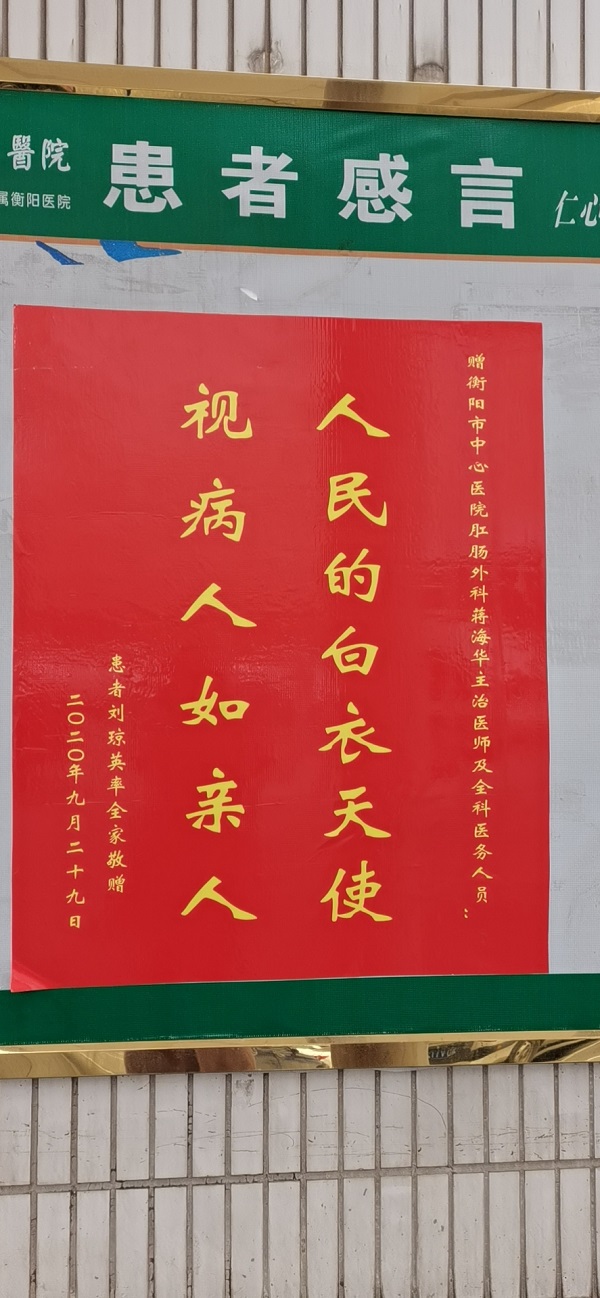 醫院
属衡阳医院
患者感言
仁心
赠衡阳市中心医院肛肠外科蒋海华主治医师及全科医务人员：
人民的白衣天使
视病人如亲人
患者刘琼英率全家敬赠
二〇二〇年九月二十九日